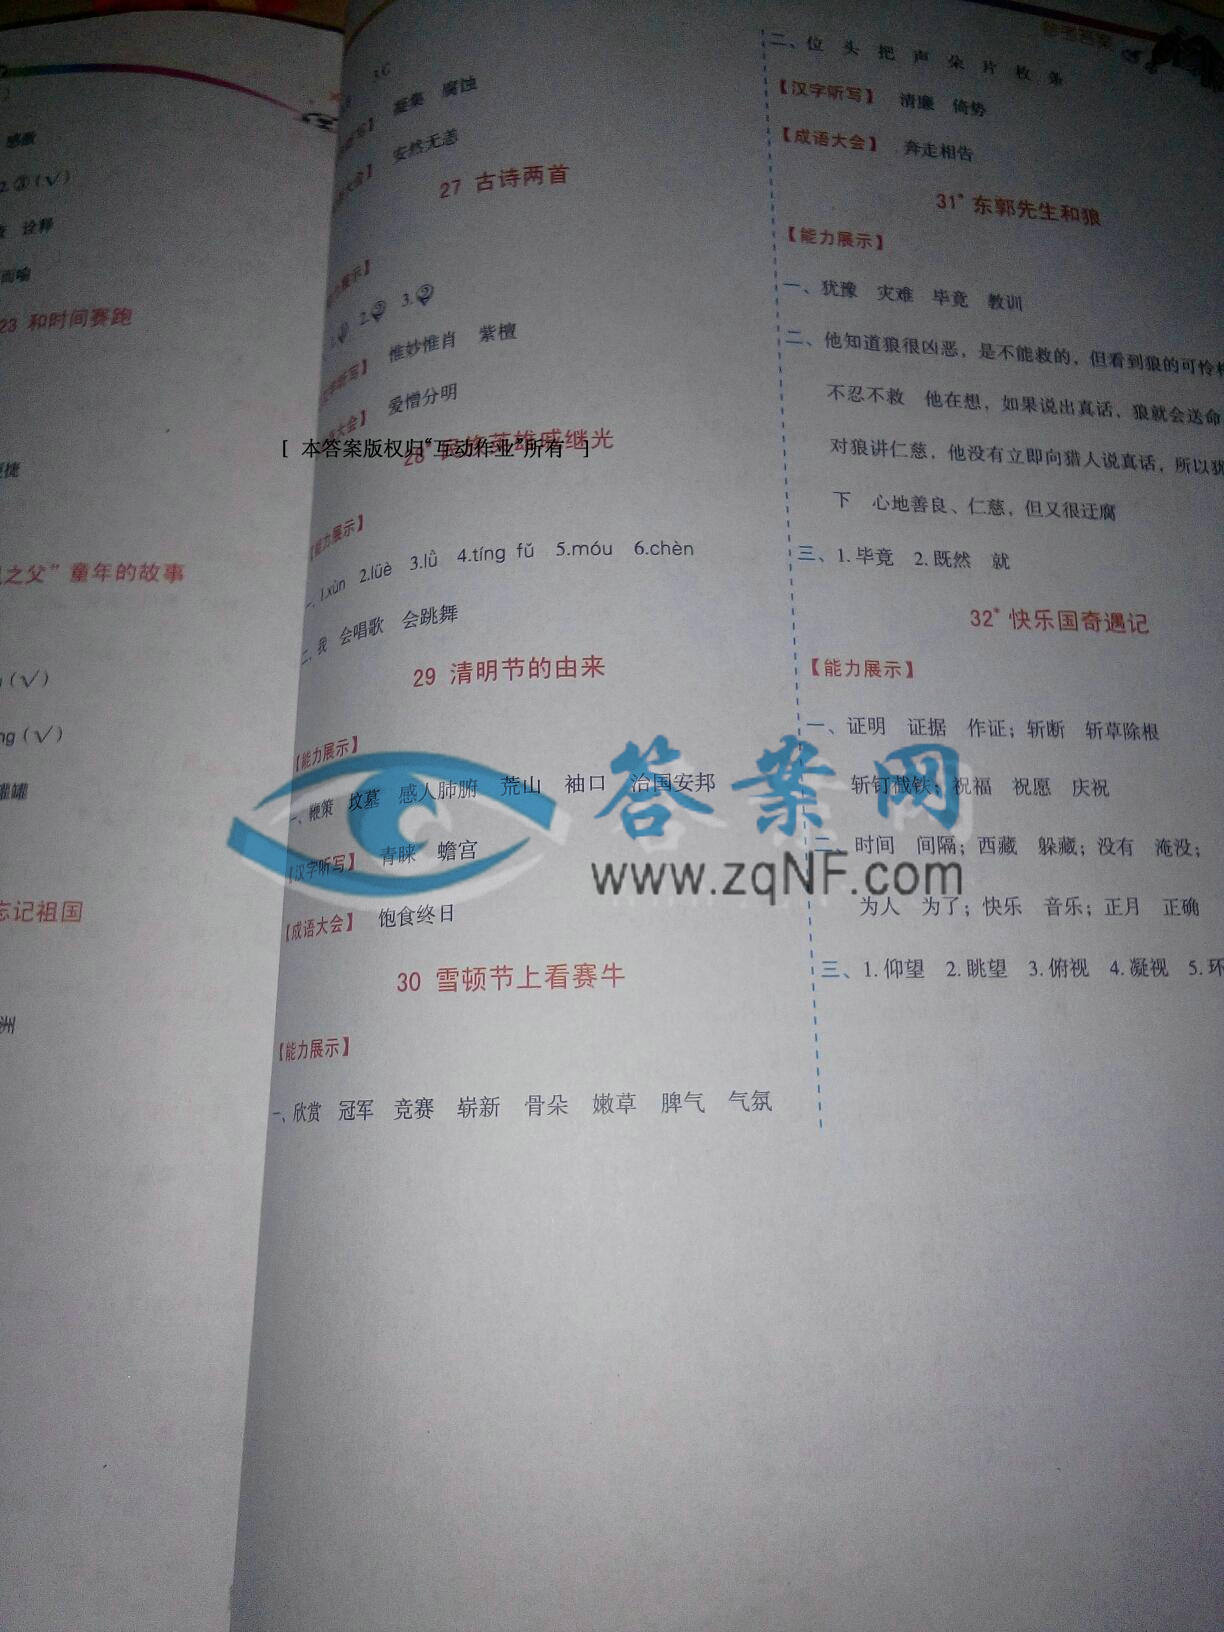 感激
2.③(√)
诠释
而喻
23 和时间赛跑
捷
之父”童年的故事
(√)
ng(√)
罐罐
忘记祖国
洲
3.C
凝集 腐蚀
大会】 安然无恙
27 古诗两首
【能力展示】
1.① 2.② 3.②
【汉字听写】 惟妙惟肖 紫檀
大会】 爱憎分明
28* 民族英雄戚继光
[ 本答案版权归“互动作业”所有 ]
【能力展示】
一、1.xùn 2.lüè 3.lǜ 4.tíng fǔ 5.móu 6.chèn
二、我 会唱歌 会跳舞
29 清明节的由来
【能力展示】
一、鞭策 坟墓 感人肺腑 荒山 袖口 治国安邦
【汉字听写】 青睐 蟾宫
【成语大会】 饱食终日
30 雪顿节上看赛牛
【能力展示】
一、欣赏 冠军 竞赛 崭新 骨朵 嫩草 脾气 气氛
参考答案
二、位 头 把 声 朵 片 枚 条
【汉字听写】 清廉 倚势
【成语大会】 奔走相告
31* 东郭先生和狼
【能力展示】
一、犹豫 灾难 毕竟 教训
二、他知道狼很凶恶，是不能救的，但看到狼的可怜
不忍不救 他在想，如果说出真话，狼就会送命
对狼讲仁慈，他没有立即向猎人说真话，所以犹
下 心地善良、仁慈，但又很迂腐
三、1.毕竟 2.既然 就
32* 快乐国奇遇记
【能力展示】
一、证明 证据 作证；斩断 斩草除根
斩钉截铁；祝福 祝愿 庆祝
二、时间 间隔；西藏 躲藏；没有 淹没；
为人 为了；快乐 音乐；正月 正确
三、1.仰望 2.眺望 3.俯视 4.凝视 5.环
答案网
www.zqNF.com